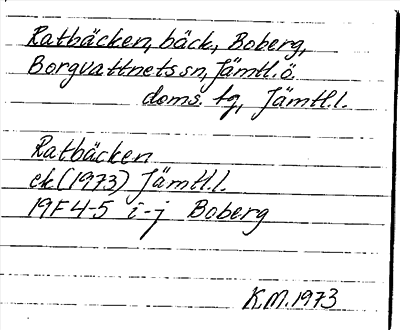 Ratbäcken, bäck, Boberg,
Borgvattnets sn, Jämtl. ö.
doms. tg, Jämtl. l.
Ratbäcken
ek (1973) Jämtl. l.
19F 4-5 i-j Boberg
K.M. 1973